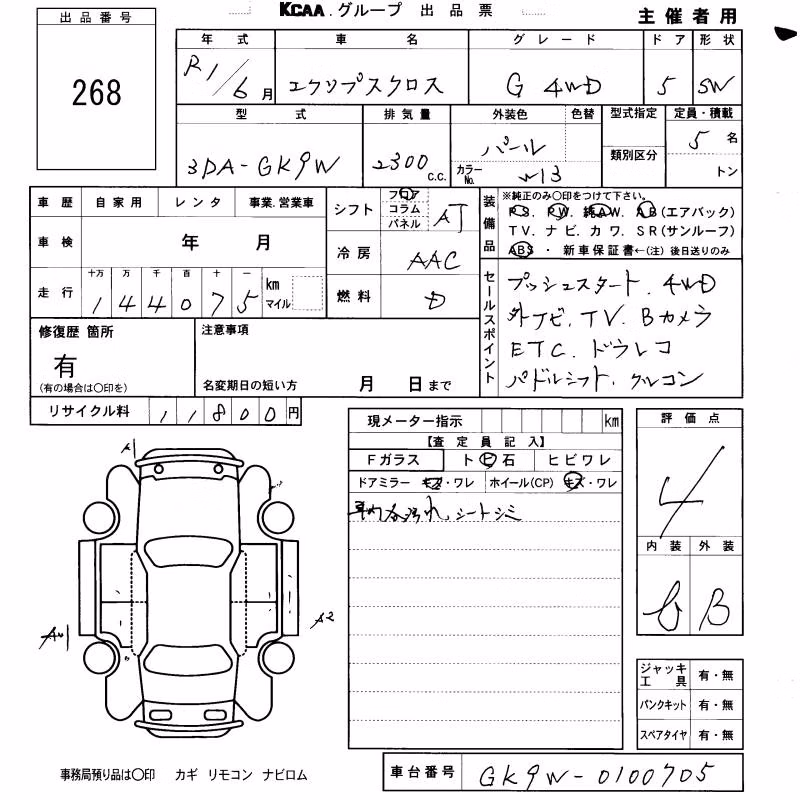 KCAA.グループ 出品票
主催者用
出品番号
268
年式 車名 グレード ドア 形状
R1/6月 エクリプスクロス G 4WD 5 SW
型式 排気量 外装色 色替 型式指定 定員・積載
3DA-GK9W 2300 C.C. パール 5名
カラーNo. W13 類別区分 トン
車歴 自家用 レンタ 事業.営業車
シフト フロア コラム パネル AT
車検 年 月
冷房 AAC
走行 十万 万 千 百 十 一
144075 km マイル
燃料 D
装備品 ※純正のみ〇印をつけて下さい。
PS. PW. 純AW. AB(エアバック)
TV. ナビ. カワ. SR(サンルーフ)
ABS ・ 新車保証書←(注) 後日送りのみ
セールスポイント
プッシュスタート. 4WD
外ナビ. TV. Bカメラ
ETC. ドラレコ
パドルシフト. クルコン
修復歴 箇所
有
(有の場合は〇印を)
注意事項
名変期日の短い方 月 日まで
リサイクル料 11800円
現メーター指示 km
【査定員記入】
Fガラス トビ石 ヒビワレ
ドアミラー キズ・ワレ ホイール(CP) キズ・ワレ
車内各汚れ シートシミ
評価点
4
内装 外装
B
A1
A2
ジャッキ工具 有・無
パンクキット 有・無
スペアタイヤ 有・無
事務局預り品は〇印 カギ リモコン ナビロム
車台番号 GK9W-0100705